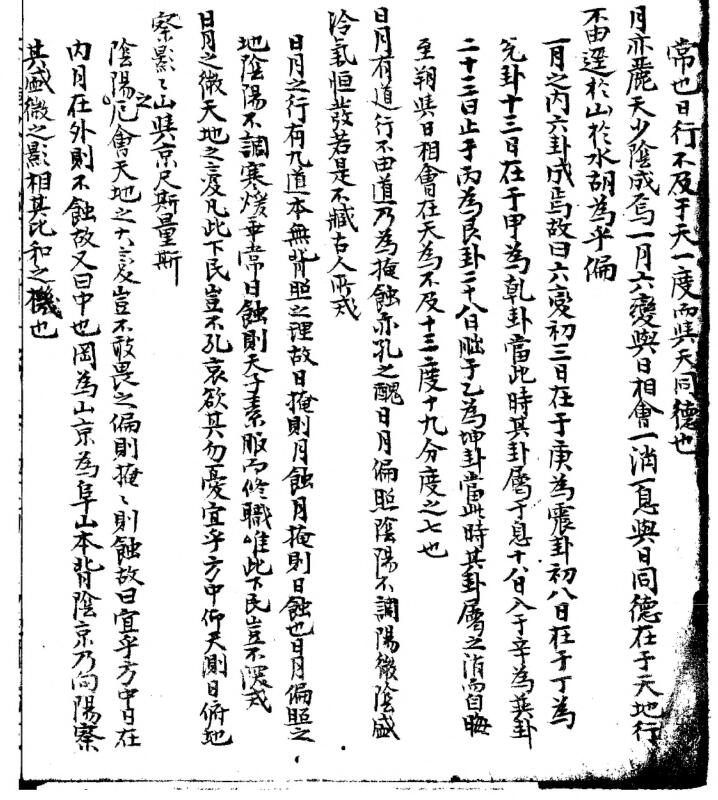 常也日行不及于天一度而與天同德也
月亦麗天少陰成焉一月六變與日相會一消一息與日同德在于天地行
不由逕於山於水胡為乎偏
一月之內六卦成焉故曰六變初三日在于庚為震卦初八日在于丁為
兌卦十三日在于甲為乾卦當此時其卦屬于息十八日入于辛為巽卦
二十三日止于丙為艮卦二十八日朏于乙為坤卦當此時其卦屬之消而自晦
至朔與日相會在天為不及十三度十九分度之七也
日月有道行不由道乃為掩蝕亦孔之醜日月偏照陰陽不調陽微陰盛
冷氣恒發若是不臧古人所戒
日月之行有九道本無背照之理故日掩則月蝕月掩則日蝕也日月偏照之
地陰陽不調寒煖乖常日蝕則天子素服而修職唯此下民豈不深戒
日月之微天地之憂凡此下民豈不孔哀欲其勿憂宜乎方中仰天測日俯地
察影之山與京尺斯量斯
陰陽之厄會天地之大變豈不敢畏之偏則掩〻則蝕故曰宜乎方中日在
內月在外則不蝕故又曰中也岡為山京為阜山本背陰京乃向陽察
其盛微之影相其比和之機也